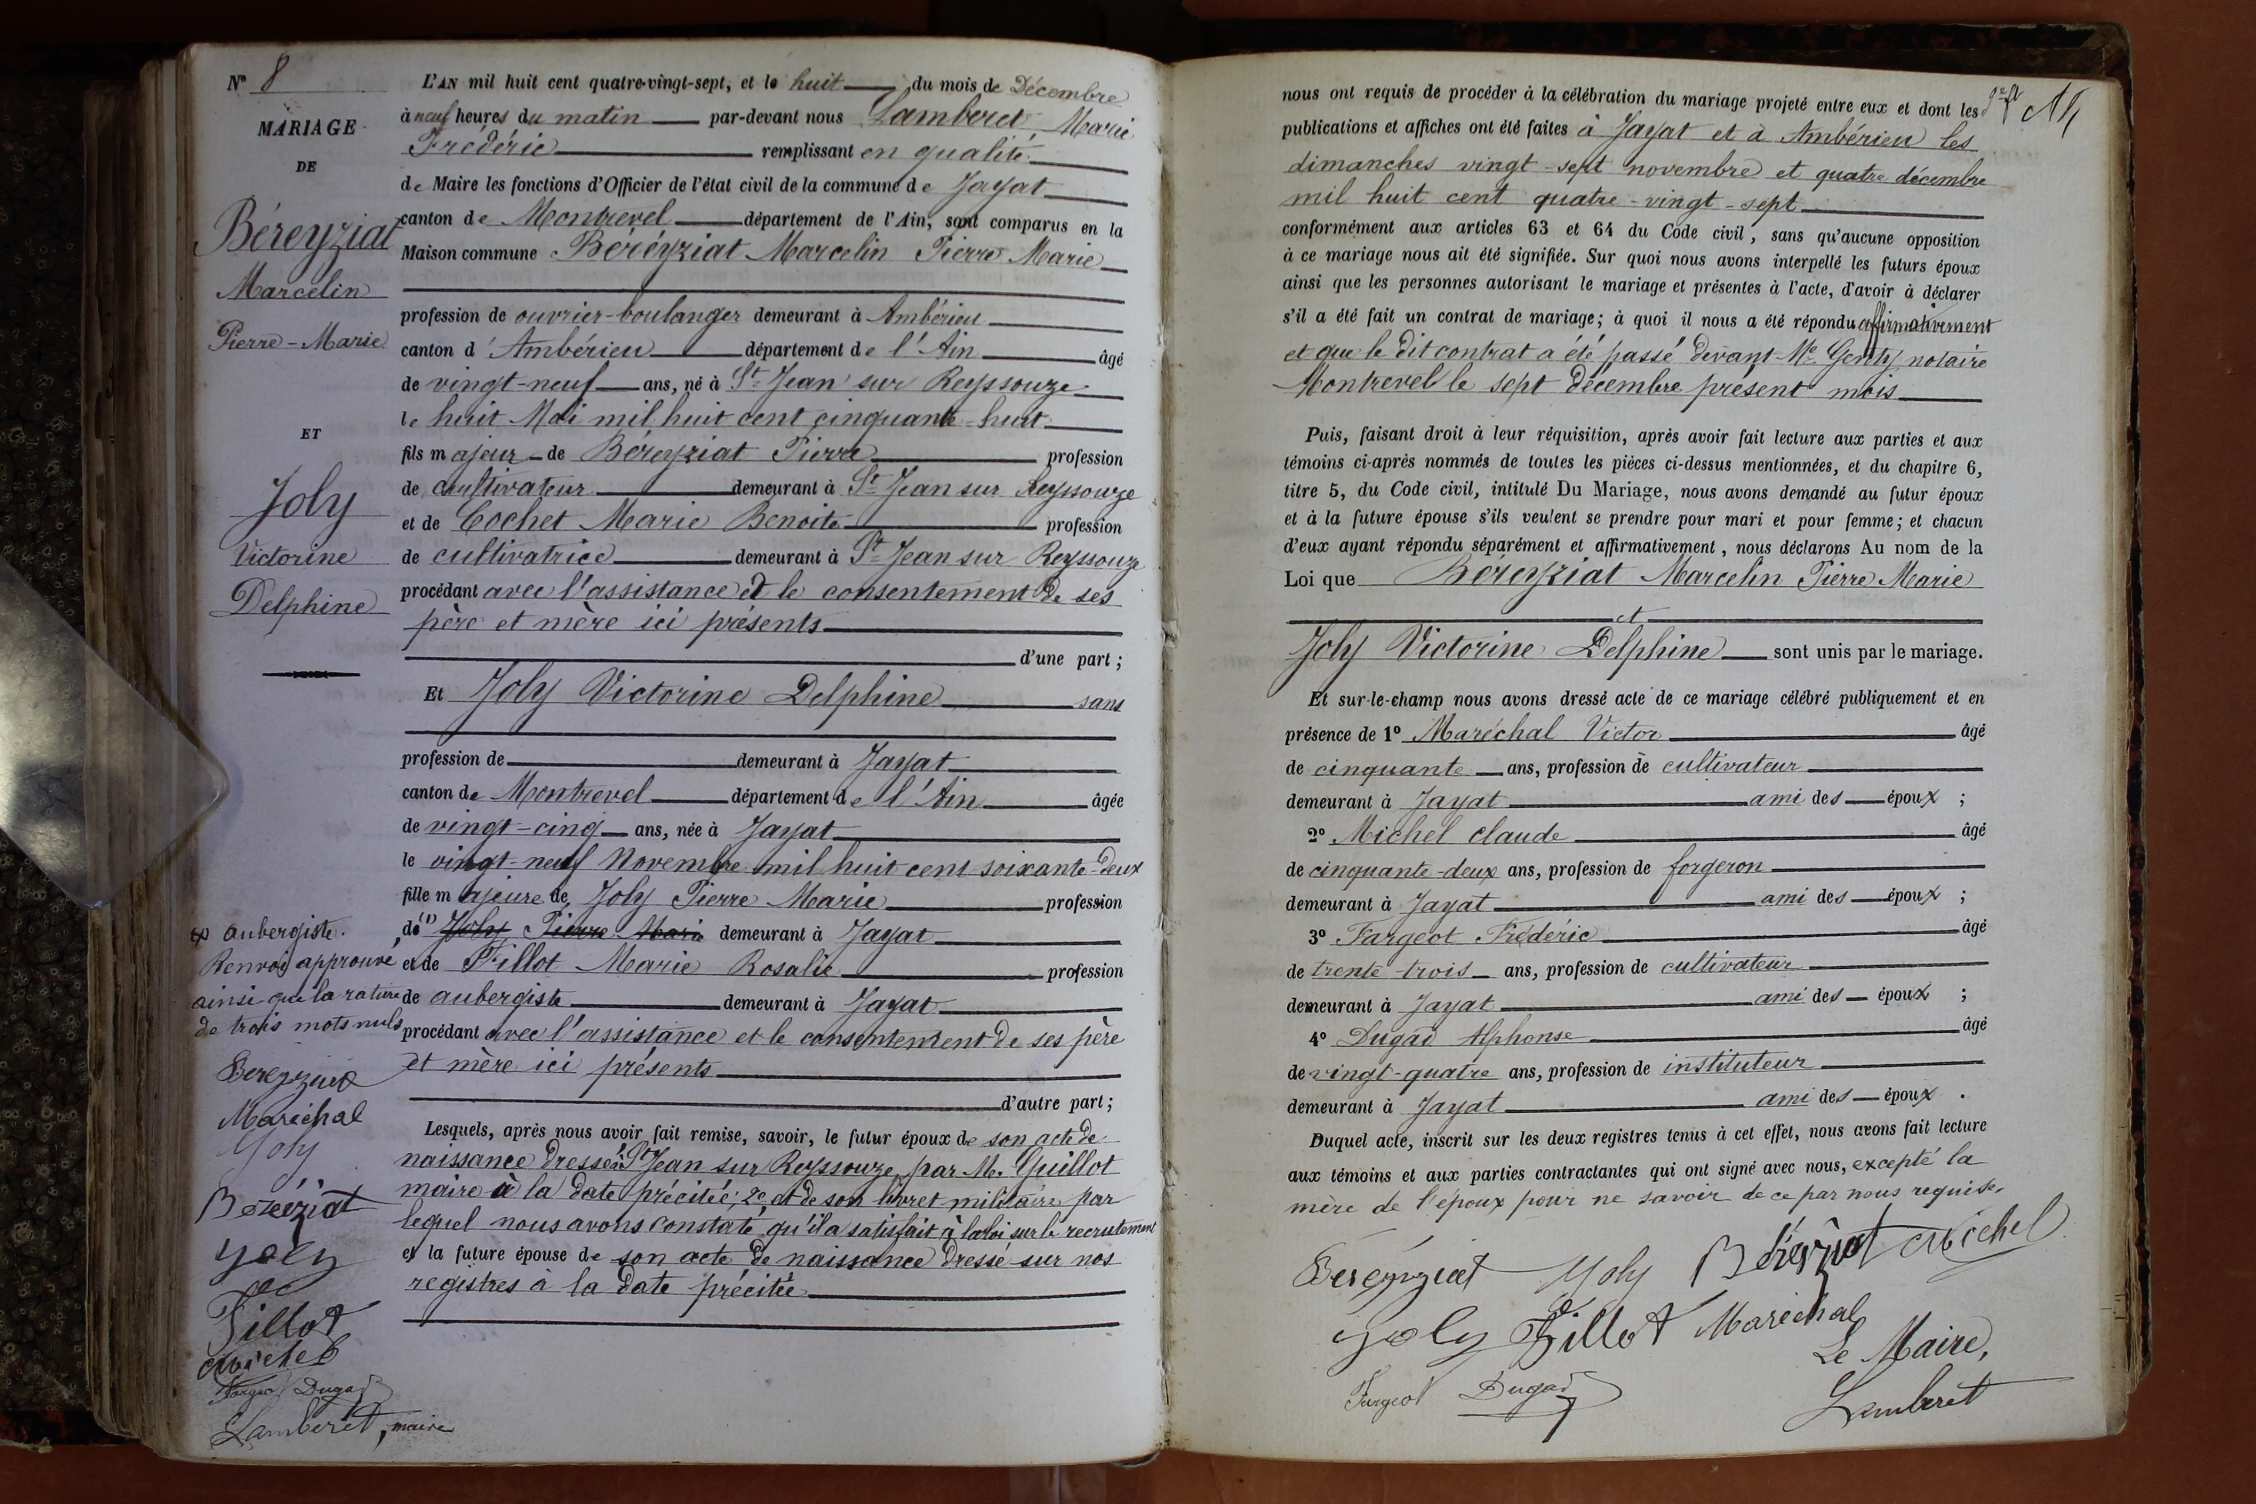 N° 8
MARIAGE
DE
Béreyziat
Marcelin
Pierre-Marie
ET
Joly
Victorine
Delphine
L'AN mil huit cent quatre-vingt-sept, et le huit du mois de Décembre
à neuf heures du matin par-devant nous Lamberet Marie
Frédéric remplissant en qualité
de Maire les fonctions d'Officier de l'état civil de la commune de Jayat
canton de Montrevel département de l'Ain, sont comparus en la
Maison commune Béréyziat Marcelin Pierre Marie
profession de ouvrier-boulanger demeurant à Ambérieu
canton d'Ambérieu département de l'Ain âgé
de vingt-neuf ans, né à St Jean sur Reyssouze
le huit Mai mil huit cent cinquante-huit
fils majeur de Béreyziat Pierre profession
de cultivateur demeurant à St Jean sur Reyssouze
et de Cochet Marie Benoite profession
de cultivatrice demeurant à St Jean sur Reyssouze
procédant avec l'assistance et le consentement de ses
père et mère ici présents
d'une part ;
Et Joly Victorine Delphine sans
profession de demeurant à Jayat
canton de Montrevel département de l'Ain âgée
de vingt-cinq ans, née à Jayat
le vingt-neuf Novembre mil huit cent soixante-deux
fille majeure de Joly Pierre Marie profession
de (1) Joly Pierre Marie demeurant à Jayat
et de Fillot Marie Rosalie profession
de aubergiste demeurant à Jayat
procédant avec l'assistance et le consentement de ses père
et mère ici présents
d'autre part ;
Lesquels, après nous avoir fait remise, savoir, le futur époux de son acte de
naissance dressé à St Jean sur Reyssouze par M. Guillot
maire à la date précitée ; 2° et de son livret militaire par
lequel nous avons constaté qu'il a satisfait à la loi sur le recrutement
et la future épouse de son acte de naissance dressé sur nos
registres à la date précitée
aubergiste.
Renvoi approuvé,
ainsi que la rature
de trois mots nuls
Bereyziat
Maréchal
Joly
Béréziat
Joly
Fillot
Michel
Fargeot Dugad
Lamberet, maire
nous ont requis de procéder à la célébration du mariage projeté entre eux et dont les
publications et affiches ont été faites à Jayat et à Ambérieu les
dimanches vingt-sept novembre et quatre décembre
mil huit cent quatre-vingt-sept
conformément aux articles 63 et 64 du Code civil, sans qu'aucune opposition
à ce mariage nous ait été signifiée. Sur quoi nous avons interpellé les futurs époux
ainsi que les personnes autorisant le mariage et présentes à l'acte, d'avoir à déclarer
s'il a été fait un contrat de mariage ; à quoi il nous a été répondu affirmativement
et que le dit contrat a été passé devant Me Genty notaire
Montrevel le sept décembre présent mois
Puis, faisant droit à leur réquisition, après avoir fait lecture aux parties et aux
témoins ci-après nommés de toutes les pièces ci-dessus mentionnées, et du chapitre 6,
titre 5, du Code civil, intitulé Du Mariage, nous avons demandé au futur époux
et à la future épouse s'ils veulent se prendre pour mari et pour femme ; et chacun
d'eux ayant répondu séparément et affirmativement, nous déclarons Au nom de la
Loi que Béreyziat Marcelin Pierre Marie
et
Joly Victorine Delphine sont unis par le mariage.
Et sur-le-champ nous avons dressé acte de ce mariage célébré publiquement et en
présence de 1° Maréchal Victor âgé
de cinquante ans, profession de cultivateur
demeurant à Jayat ami des époux ;
2° Michel claude âgé
de cinquante-deux ans, profession de forgeron
demeurant à Jayat ami des époux ;
3° Fargeot Frédéric âgé
de trente trois ans, profession de cultivateur
demeurant à Jayat ami des époux ;
4° Dugad Alphonse âgé
de vingt-quatre ans, profession de instituteur
demeurant à Jayat ami des époux .
Duquel acte, inscrit sur les deux registres tenus à cet effet, nous avons fait lecture
aux témoins et aux parties contractantes qui ont signé avec nous, excepté la
mère de l'époux pour ne savoir de ce par nous requise.
Bereyziat Joly Béréziat Michel
Joly Fillot Maréchal
Le Maire,
Fargeot Dugad
Lamberet